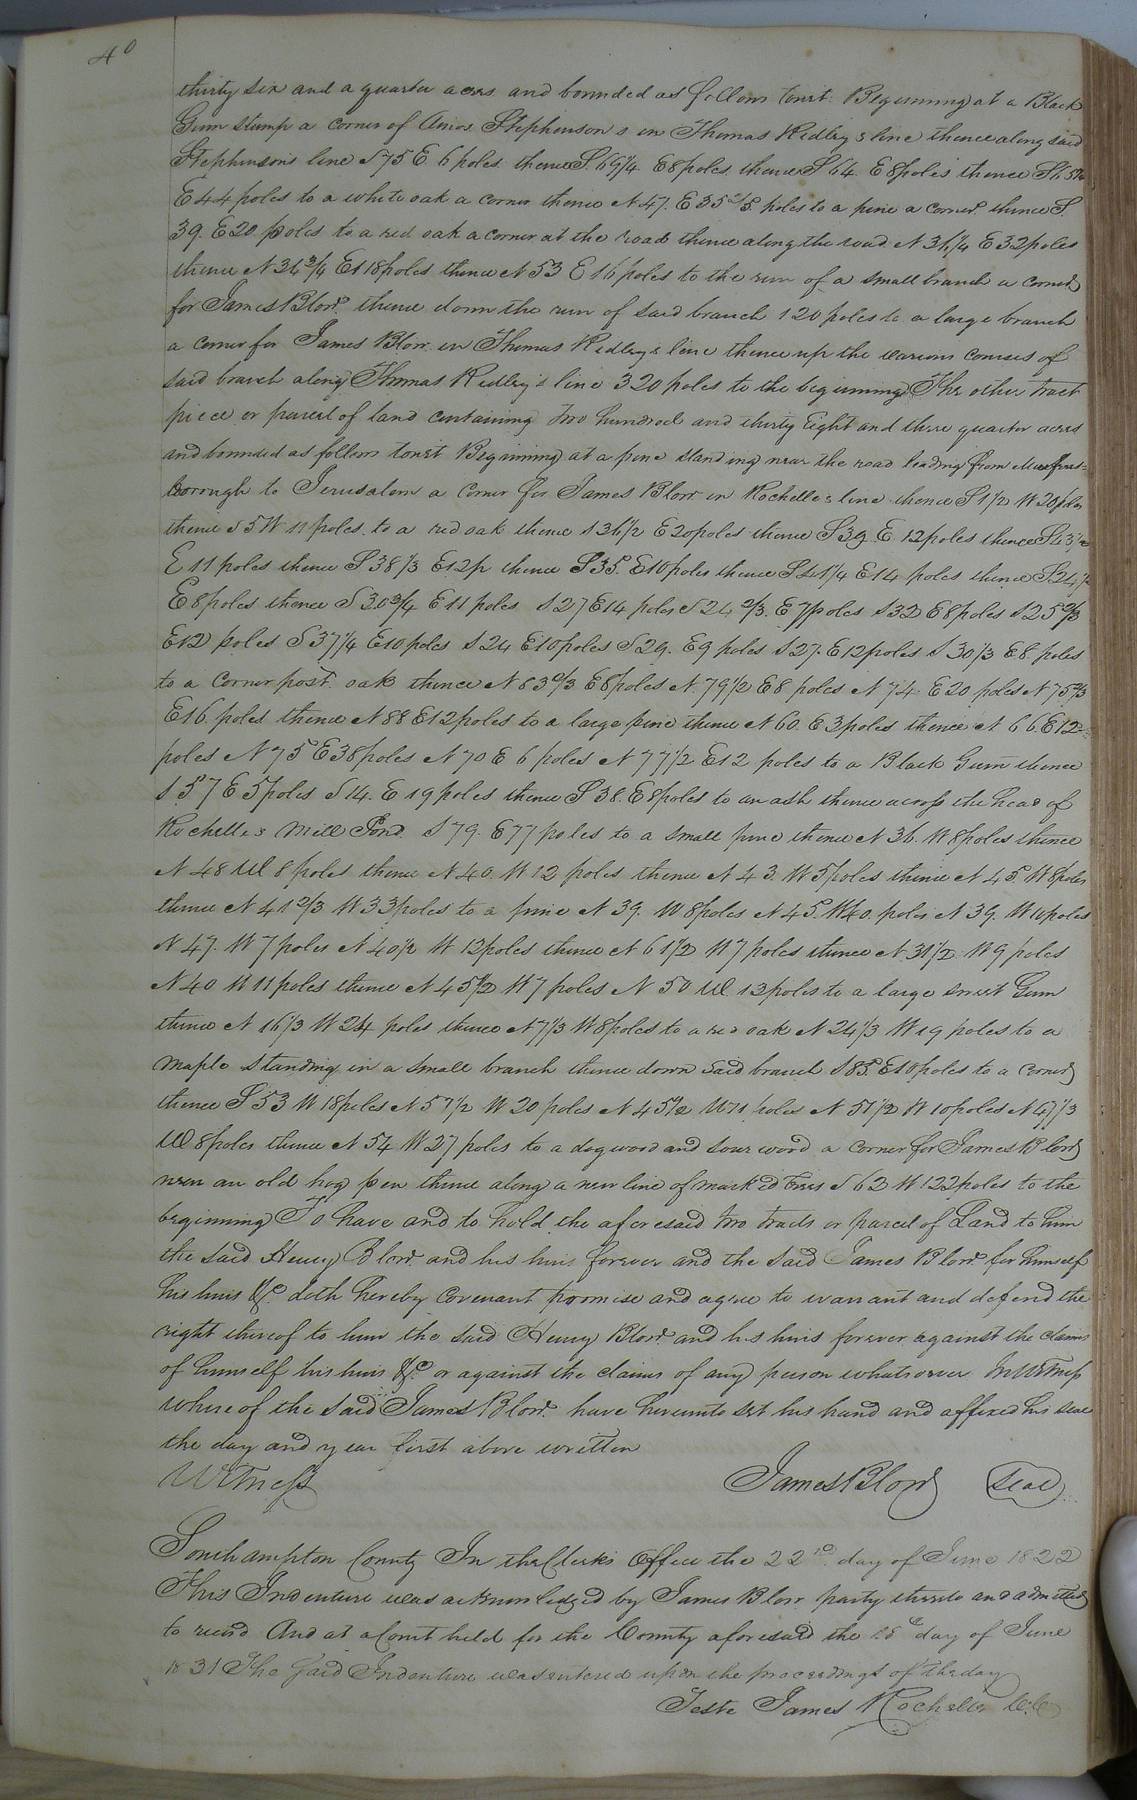 40
thirty six and a quarter acres and bounded as follows towit. Beginning at a Black
Gum stump a corner of Amos Stephenson s in Thomas Ridley s line thence along said
Stephensons line S 75 E. 6 poles thence S. 69 1/4 E 8 poles thence S 64. E 8 poles thence
E 44 poles to a white oak a corner thence N 47. E 35 2/3 poles to a pine a corner. thence S.
39. E 20 poles to a red oak a corner at the road thence along the road N 31 1/4 E 32 poles
thence N 34 3/4 E 118 poles thence N 53 E 16 poles to the run of a small branch a corner
for James Blow. thence down the run of said branch 120 poles to a large branch
a corner for James Blow in Thomas Ridley s line thence up the various courses of
said branch along Thomas Ridley's line 320 poles to the beginning The other tract
piece or parcel of land containing two hundred and thirty Eight and three quarter acres
and bounded as follows towit Beginning at a pine standing near the road leading from Murfrees=
borough to Jerusalem a corner for James Blow in Rochelle s line thence S 1 1/2 W 20 poles
thence S 5 W 11 poles. to a red oak thence S 36 1/2 E 20 poles thence S 39. E. 12 poles thence S 43 1/2
E 11 poles thence S 38 1/3 E 12 p thence S 35. E 10 poles thence S 41 1/4 E 14 poles thence S. 24 1/2
E 8 poles thence S 30 3/4 E 11 poles S 27 E 14 poles S 24 2/3. E 7 poles S 32 E 8 poles S 25 2/3
E 12 poles S 37 1/4 E 10 poles S 24 E 10 poles S 29. E 9 poles S 27. E 12 poles S 30 1/3 E 8. poles
to a corner post. oak thence N 83 2/3 E 8 poles N. 79 1/2 E 8 poles N 74. E 20 poles N 75 2/3
E 16. poles thence N 88 E 12 poles to a large pine thence N 60. E 3 poles thence N 66. E 12=
poles N 75 E 38 poles N 70 E 6 poles N 77 1/2 E 12 poles to a Black Gum thence
S 57 E 5 poles S 14. E 19 poles thence S 38. E 8 poles to an ash thence across the head of
Rochelle s Mill Pond. S 79. E 77 poles to a small pine thence N 36. W 8 poles thence
N 48 W 8 poles thence N 40. W 12 poles thence N 43. W 5 poles thence N 45. W 8 poles
thence N 41 2/3 W 33 poles to a pine N 39. W 8 poles N 45. W 40. poles N 39. W 10 poles
N 47. W 7 poles N 40 1/2 W 12 poles thence N 61 1/2 W 7 poles thence N 31 1/2. W 9 poles
N 40 W 11 poles thence N 45 1/2 W 7 poles N 50 W. 13 poles to a large sweet Gum
thence N 16 1/3 W 24 poles thence N 7 1/3 W 8 poles to a red oak N 24 1/3 W 19 poles to a
maple standing in a small branch thence down said branch S 85. E 10 poles to a corner
thence S 53 W 18 poles N 57 1/2 W 20 poles N 45 1/2 W 11 poles N 51 1/2 W 10 poles N 47 1/3
W 8 poles thence N 54 W 27 poles to a dogwood and sour wood a corner for James Blow
near an old hog pen thence along a new line of mark'd trees S 62 W 122 poles to the
beginning To have and to hold the aforesaid two tracts or parcel of Land to him
the said Henry Blow. and his heirs forever and the said James Blow. for himself
his heirs &c doth hereby covenant promise and agree to warrant and defend the
right thereof to him the said Henry Blow. and his heirs forever against the claims
of himself his heirs &c. or against the claims of any person whatsoever In Witness
where of the said James Blow. have hereunto set his hand and affixed his seal
the day and year first above written
Witness James Blow Seal
Southampton County In the Clerks Office the 22nd day of June 1822
This Indenture was acknowledged by James Blow party thereto and admitted
to record And at a Court held for the County aforesaid the day of June
1831 The said Indenture was entered upon the proceedings of the day
Teste James Rochelle C.C.